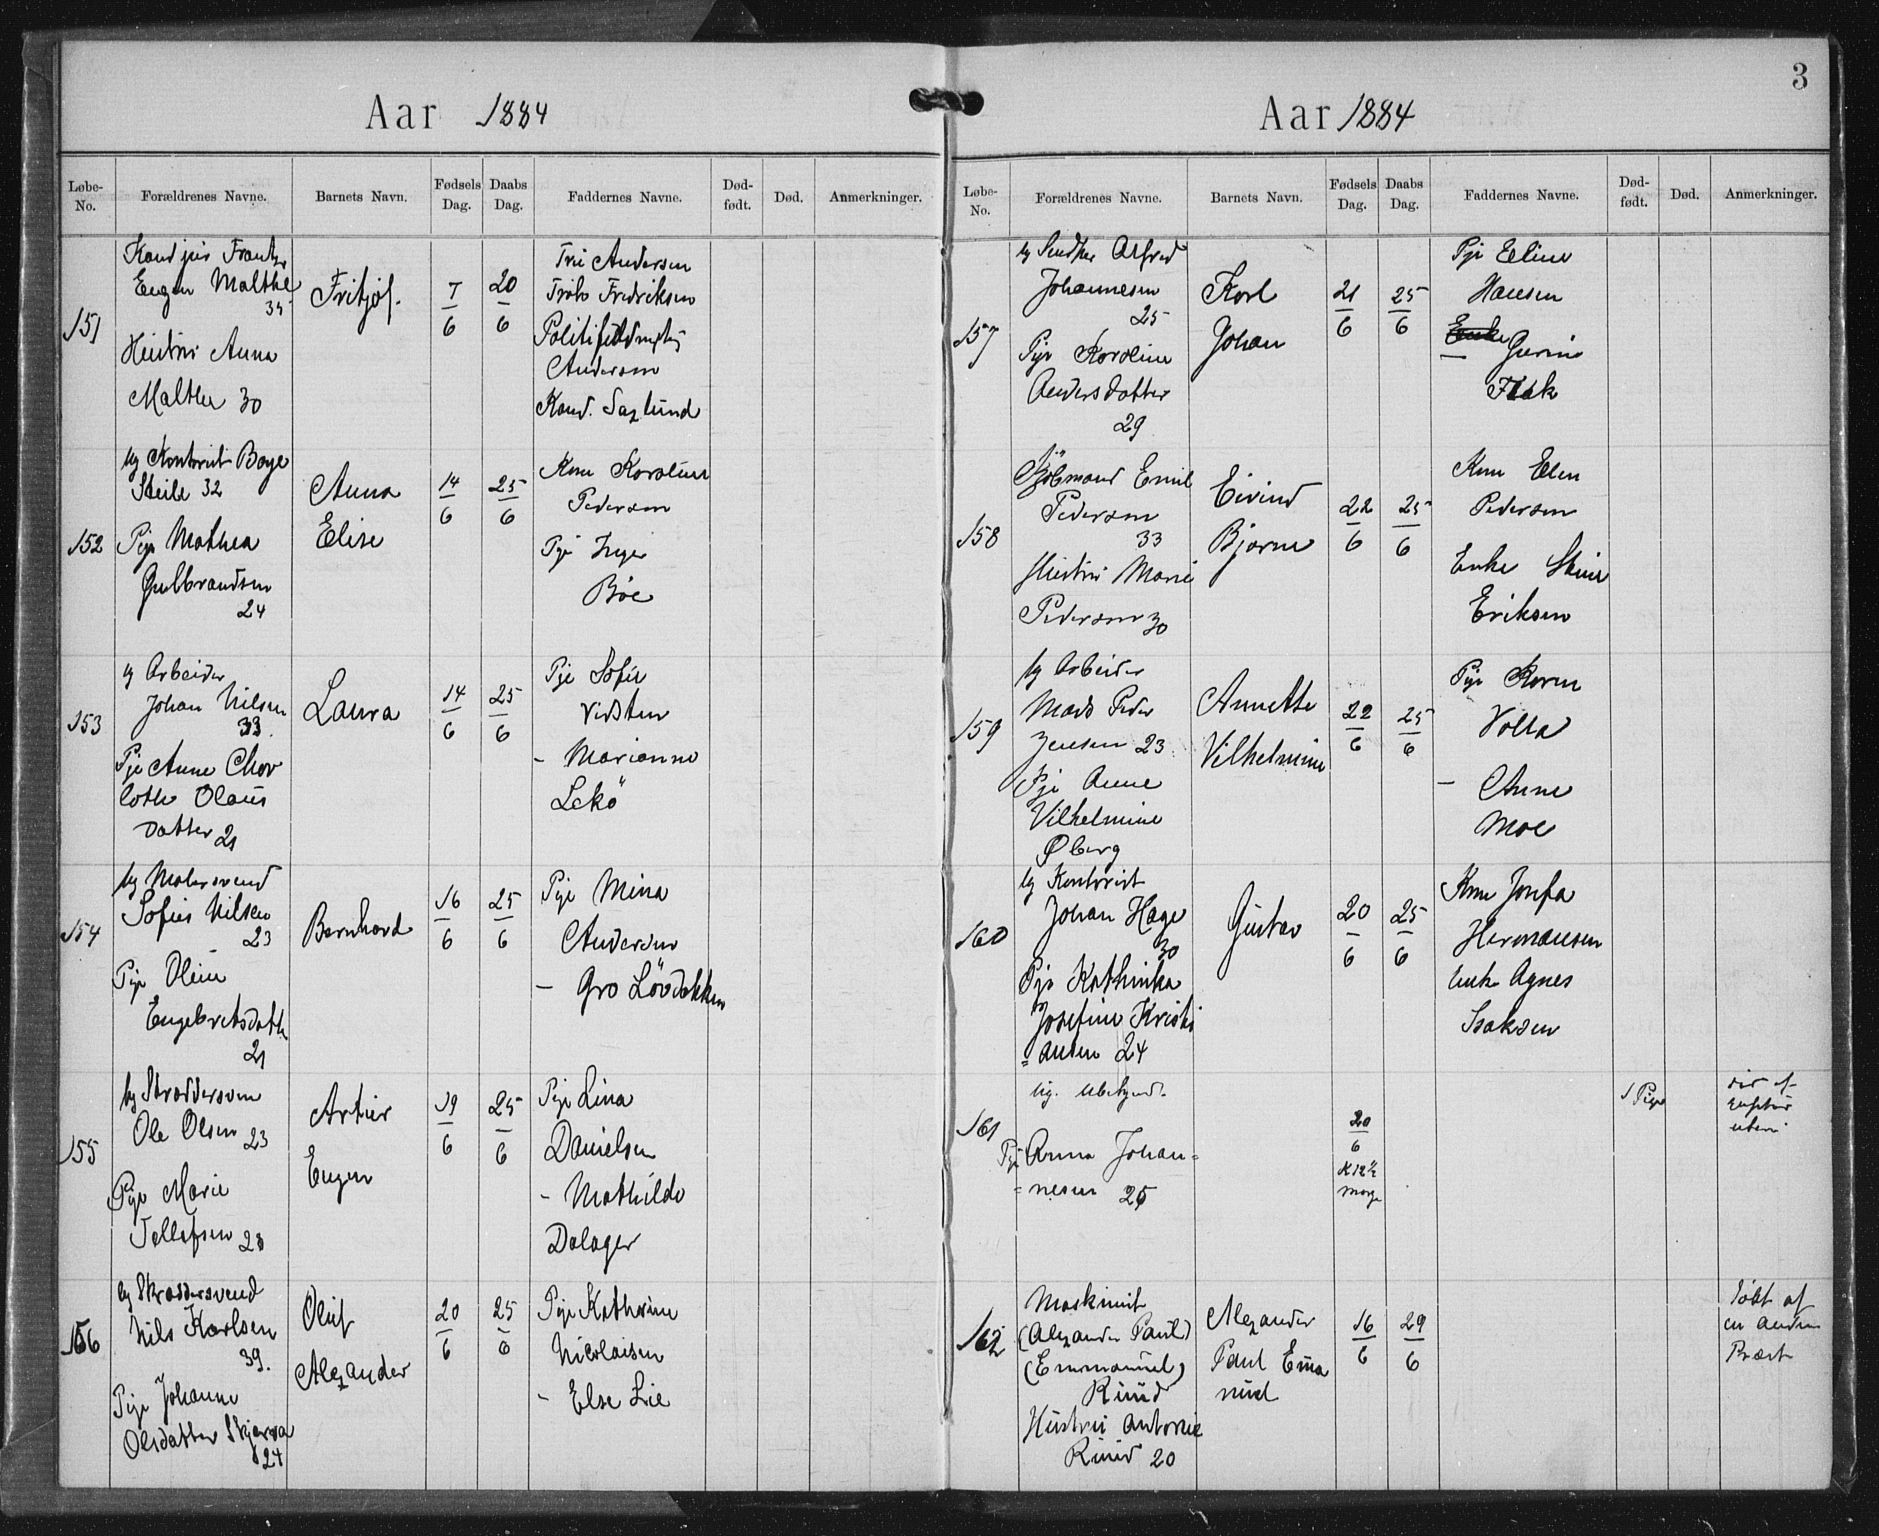 Aar 1884
Løbe-No. Forældrenes Navne. Barnets Navn. Fødsels Dag. Daabs Dag. Faddernes Navne. Død-født. Død. Anmerkninger.
151
Kand jur Frantz
Eugen Malthe
35
Hustru Anna
Malthe 30
Fritjof.
7/6
20/6
Fru Andersen
Frøk Fredriksen
Andersen
Kand.
152
ug Kontorist Boye
Steile 32
Pige Mathea
Gulbrandsen
24
Anna
Elise
14/6
25/6
Kone Karoline
Pedersen
Pige Inger
Böe
153
ug Arbeider
Johan Nilsen
33.
Pige Anne Char
lotte Olaus
datter 21
Laura
14/6
25/6
Pige Sofie
- Marianne
Lekö
154
ug Malersvend
Sofus Nilsen
23
Pige Oline
Engebretsdatte
21
Bernhard
16/6
25/6
Pige Mina
Andersen
- Gro Lövdokken
155
ug Skræddersven
Ole Olsen 23
Pige Marie
Tellefsen 28
Artur
Eugen
19/6
25/6
Pige Lina
Danielsen
- Mathilde
Dalager
156
ug Skræddersvend
Nils Karlsen
39.
Pige Johanne
Olsdatter Skjærva
24
Oluf
Alexander
20/6
25/6
Pige Kathrine
Nicolaisen
- Else Lie
3
Aar 1884
Løbe-No. Forældrenes Navne. Barnets Navn. Fødsels Dag. Daabs Dag. Faddernes Navne. Død-født. Død. Anmerkninger.
157
ug Snedker Alfred
Johannesen
25
Pige Karoline
Andersdatter
29
Karl
Johan
21/6
25/6
Pige Eline
Hansen
- Gurine
158
Sjömand Emil
Pedersen
33
Hustru Marie
Pedersen 30
Eivind
Bjarne
22/6
25/6
Kone Elen
Pedersen
Enke Stine
Eriksen
159
ug Arbeider
Mads Peder
Jensen 23
Pige Anne
Vilhelmine
Øberg
Annette
Vilhelmine
22/6
25/6
Pige Karen
Volla
- Anne
Moe
160
ug Kontorist
Johan Hage
30
Pige Kathinka
Josefine Kristi
= ansen 24
Gustav
20/6
25/6
Kone Josefa
Hermansen
Enke Agnes
Isaksen
161
ug. Ubekjendt.
Pige Anna Johan=
= nesen 25
20/6
Kl 12 ½
Morg
1 Pige
162
Maskinist
(Alexander Paul)
(Emmanuel)
Ruud
Hustru Antonie
Ruud 20
Alexander
Paul Ema
nuel
16/6
29/6
Døbt af
en anden
Præst